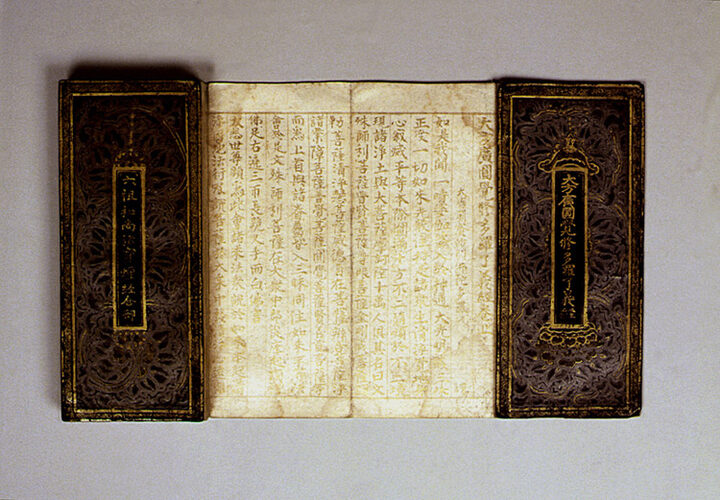 大方廣圓覺修多羅了義經
大方廣圓覺修多羅了義經卷上
如是我聞一時婆伽婆入於神通大光明藏三昧
正受一切如來光嚴住持是諸眾生清淨覺地身
心寂滅平等本際圓滿十方不二隨順於不二境
現諸淨土與大菩薩摩訶薩十萬人俱其名曰文
殊師利菩薩普賢菩薩普眼菩薩金剛藏菩薩彌
勒菩薩清淨慧菩薩威德自在菩薩辯音菩薩淨
諸業障菩薩普覺菩薩圓覺菩薩賢善首菩薩等
而為上首與諸眷屬皆入三昧同住如來平等法
會於是文殊師利菩薩在大眾中即從座起頂禮
佛足右遶三匝長跪叉手而白佛言
大悲世尊願為此會諸來法眾說於如來本起清
六祖和尚
經合部